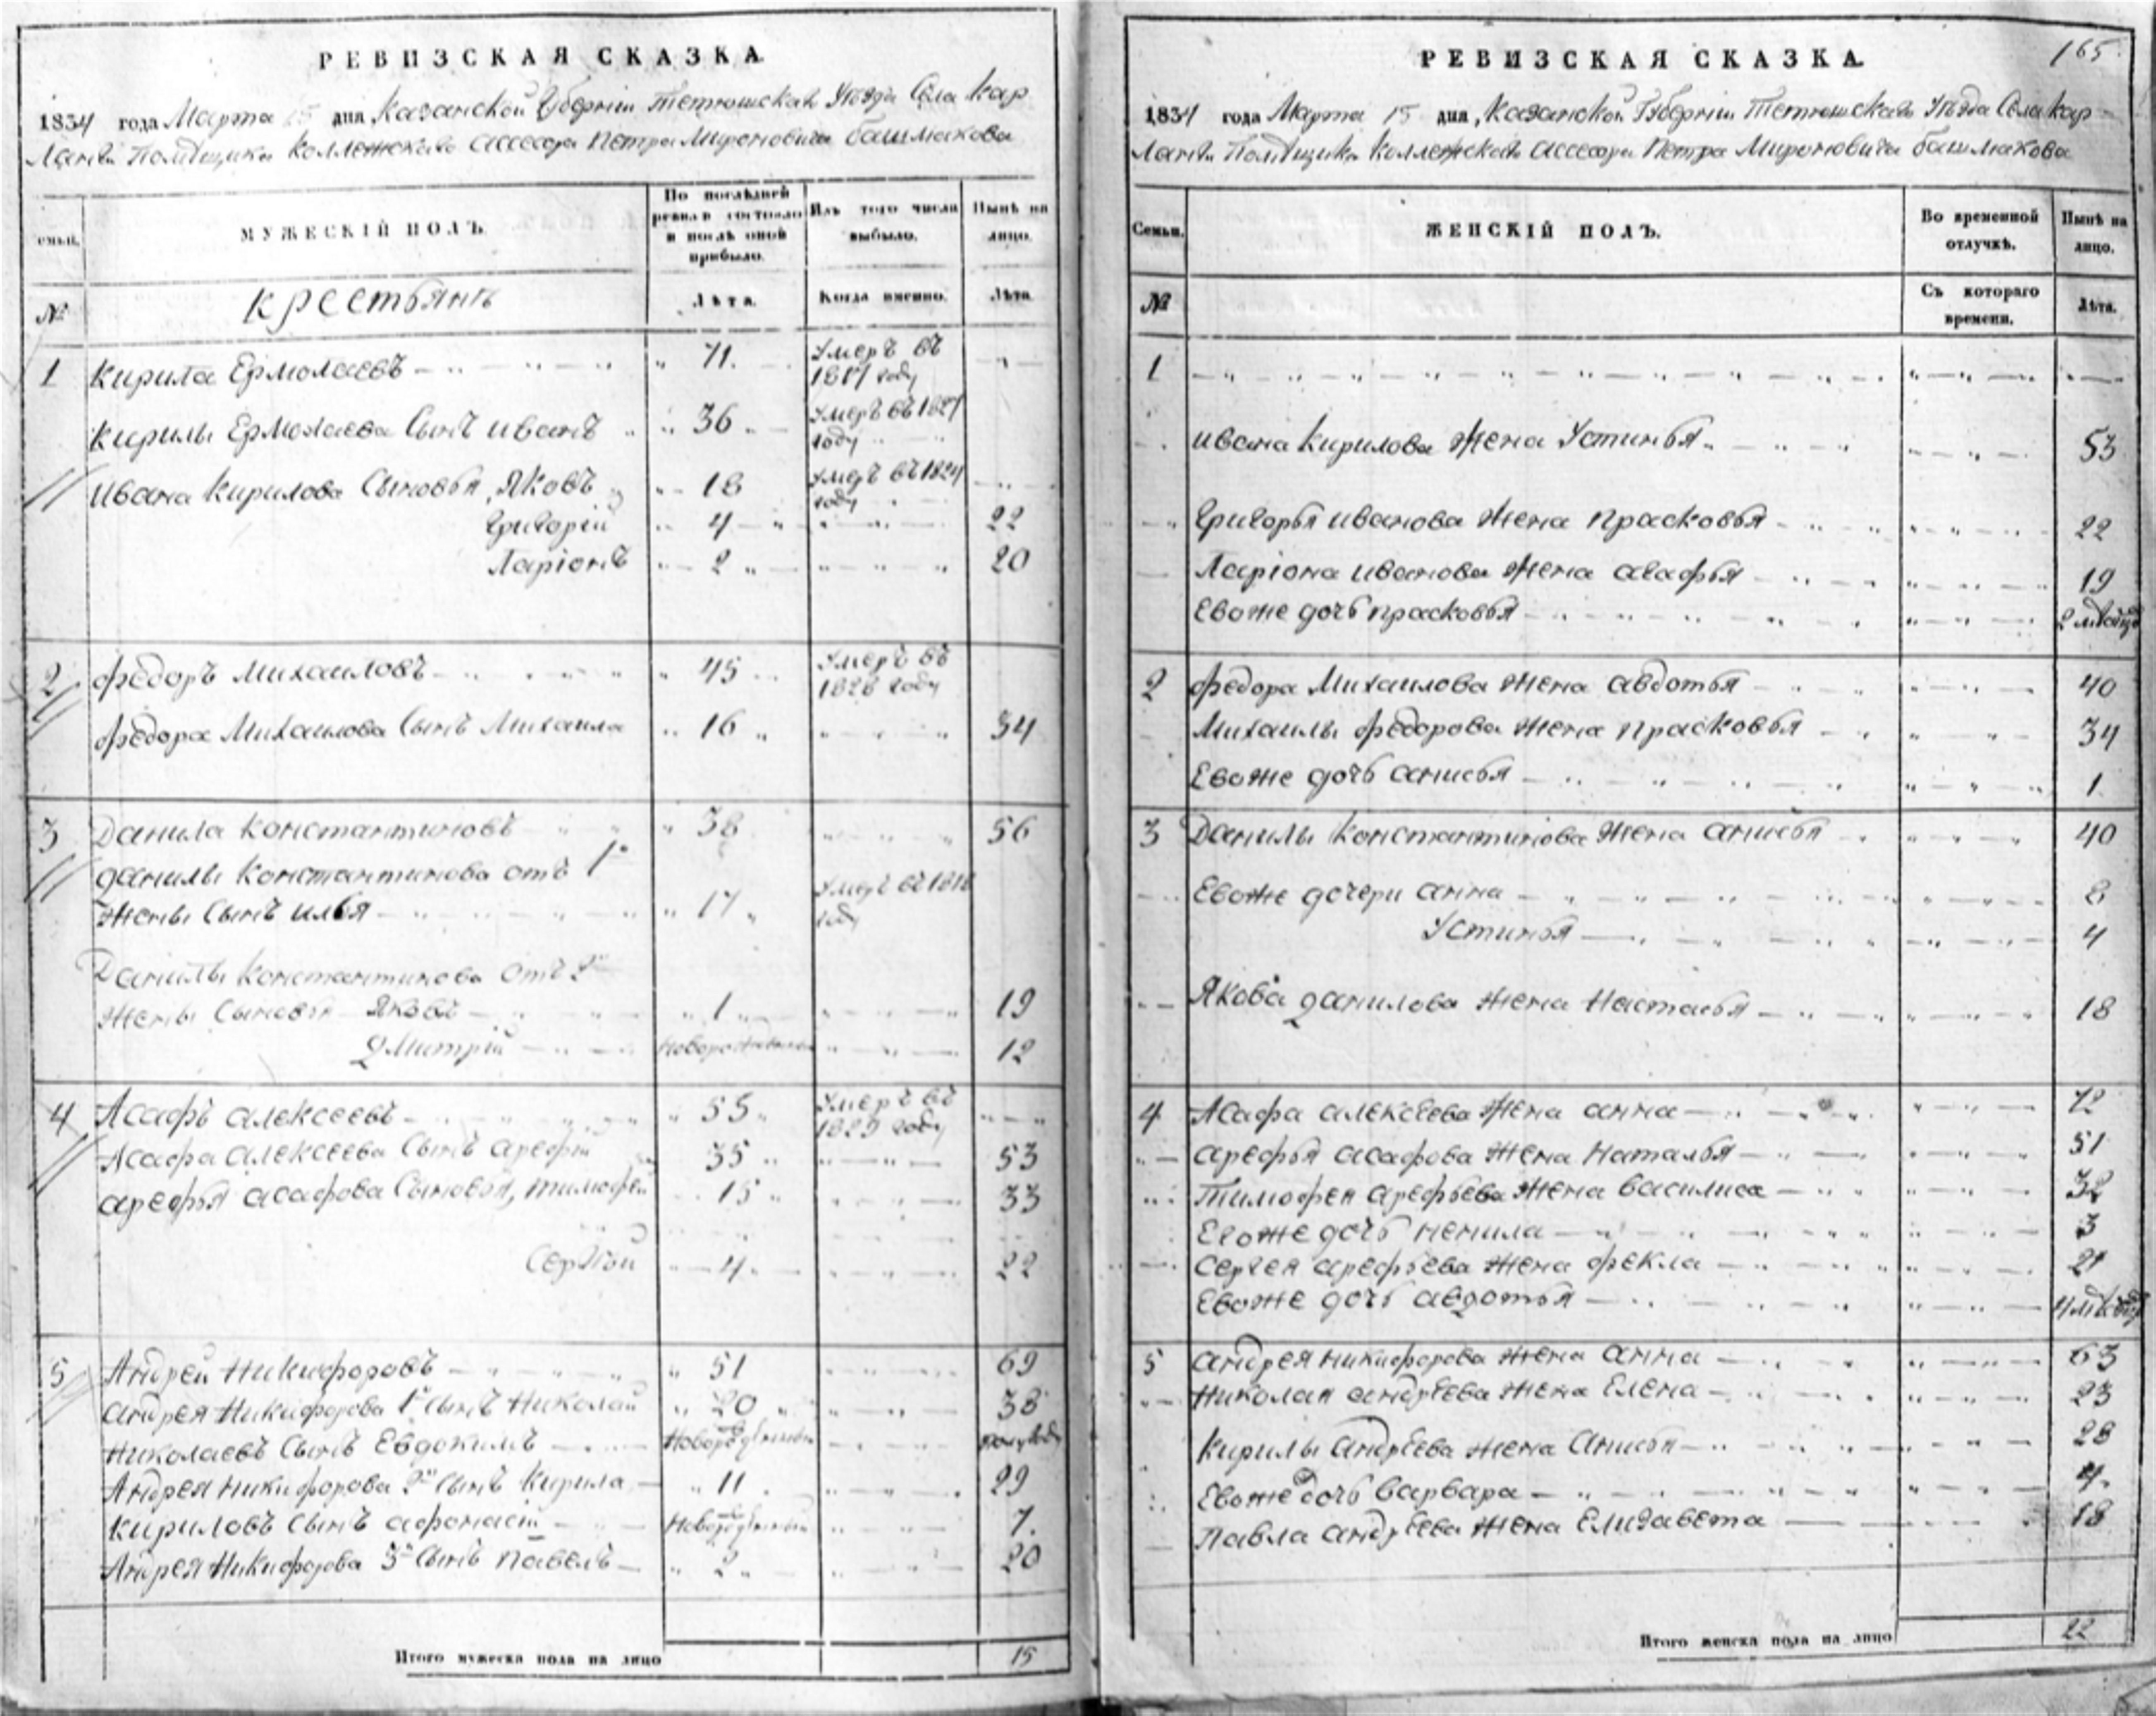 РЕВИЗСКАЯ СКАЗКА.
1834 года Марта 15 дня, Казанской Губернiи Тетюшскаго Уѣзда Села Кар
лангi Помѣщика Коллежскаго Ассесора Петра Мироновича Башмакова
По послѣдней ревизiи состояло и послѣ оной прибыло.
Изъ того числа выбыло.
Нынѣ на лицо.
МУЖЕСКIЙ ПОЛЪ.
№ Крестьянъ Лѣта. Когда именно. Лѣта.
1 Кирила Ермолаевъ 71. Умеръ въ
году
Кирилы Ермолаева Сынъ иванъ 36 Умеръ въ 1827
году
ивана Кирилова Сыновья, Яковъ 18 Умеръ въ 1824
году
Григорiй 4 22
Ларiонъ 2 20
2 Федоръ Михаиловъ 45 Умеръ въ
1828 году
Федора Михаилова Сынъ Михаила 16 34
3 Данила Константиновъ 38 56
данилы Константинова отъ 1й
жены Сынъ илья 17 Умеръ въ 1818
году
Данилы Константинова отъ 2й
жены Сыновья Яковъ 1 19
дмитрiй новорожденный 12
4 Асафъ алексеевъ 55 Умеръ въ
1829 году
Асафа алексеева Сынъ арефiй 35 53
арефья асафова Сыновья, тимофей 15 33
Сергѣй 4 22
5 Андрей Никифоровъ 51 69
андрея Никифорова 1й Сынъ Николай 20 38
Николаевъ Сынъ Евдокимъ Новорожденный
Андрея Никифорова 2й Сынъ Кирила 11 29
Кириловъ Сынъ афонасiй Новорожденный 7.
Андрея Никифорова 3й Сынъ Павелъ 2 20
Итого мужеска пола на лицо 15
165.
РЕВИЗСКАЯ СКАЗКА.
1834 года Марта 15 дня, Казанской Губернiи Тетюшскаго Уѣзда Села Кар
лангi Помѣщика Коллежскаго Ассесора Петра Мироновича Башмакова
Семьи. ЖЕНСКIЙ ПОЛЪ. Во временной отлучкѣ. Нынѣ на лицо.
№ Съ котораго времени. Лѣта.
1
ивана Кирилова жена Устинья 53
Григорья иванова жена прасковья 22
Ларiона иванова жена агафья 19
Евоже дочь прасковья 2 мѣсяца
2 Федора Михаилова жена авдотья 40
Михаилы федорова жена прасковья 34
Евоже дочь анисья 1
3 Данилы Константинова жена анисья 40
Евоже дочери анна 8
Устинья 4
Якова данилова жена Настасья 18
4 Асафа алексѣева жена анна 72
арефья асафова жена Наталья 51
Тимофея арефьева жена василиса 32
Егоже дочь ненила 3
Сергея арефьева жена фекла 21
Евоже дочь авдотья
5 андрея никифорова жена анна 63
Николая андрѣева жена Елена 23
Кирилы андрѣева жена Анисья 28
Евоже дочь варвара 4.
Павла андрѣева жена Елизавета 18
Итого женска пола на лицо 22